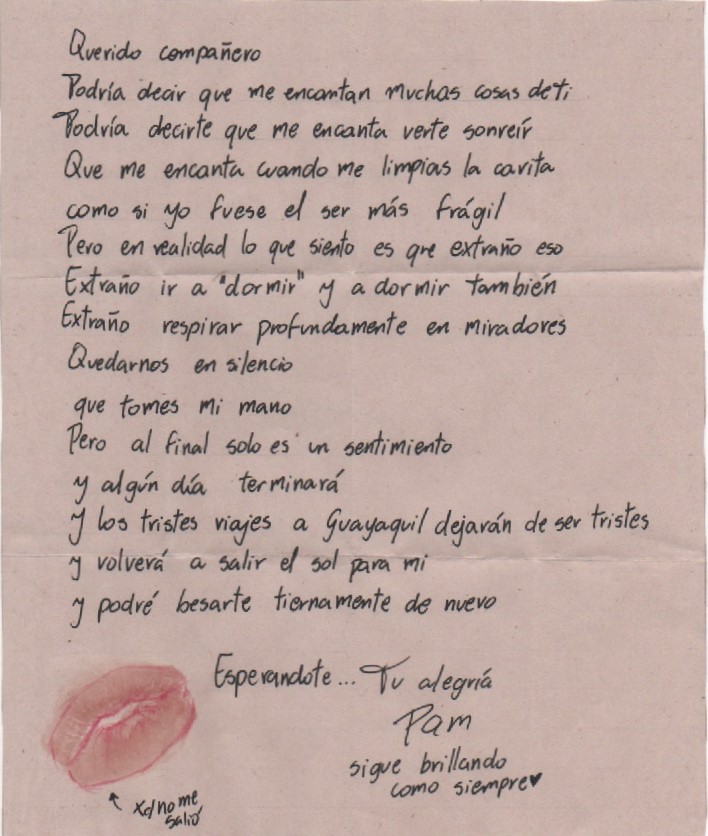 Querido compañero
Podría decir que me encantan muchas cosas de ti
Podría decirte que me encanta verte sonreír
Que me encanta cuando me limpias la carita
como si yo fuese el ser más frágil
Pero en realidad lo que siento es que extraño eso
Extraño ir a "dormir" y a dormir también
Extraño respirar profundamente en miradores
Quedarnos en silencio
que tomes mi mano
Pero al final solo es un sentimiento
y algún día terminará
y los tristes viajes a Guayaquil dejarán de ser tristes
y volverá a salir el sol para mi
y podré besarte tiernamente de nuevo
Esperandote... Tu alegría
Pam
sigue brillando
como siempre♥
xd no me
salió